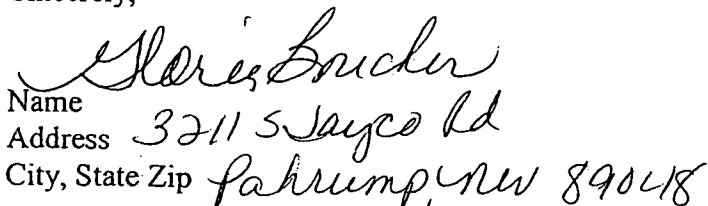 Sincerely,
Gloria Boucher
Name
Address 3211 S Jayco Rd
City, State Zip Pahrump, NV 89048